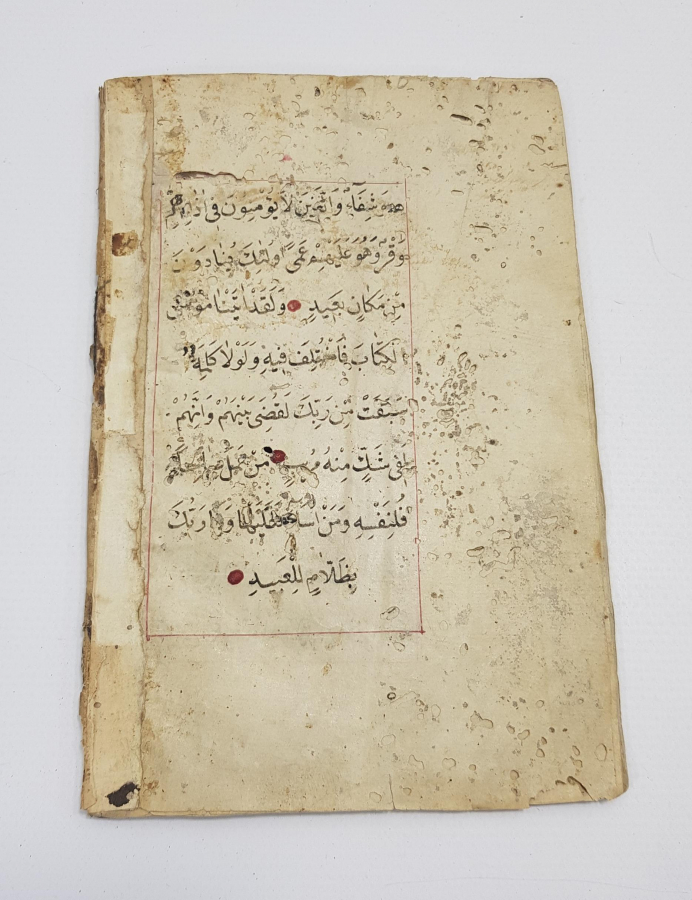 وَشِفَاءٌ وَالَّذِينَ لَا يُؤْمِنُونَ فِي آذَانِهِمْ
وَقْرٌ وَهُوَ عَلَيْهِمْ عَمًى أُولَٰئِكَ يُنَادَوْنَ
مِنْ مَكَانٍ بَعِيدٍ وَلَقَدْ آتَيْنَا مُوسَى
الْكِتَابَ فَاخْتُلِفَ فِيهِ وَلَوْلَا كَلِمَةٌ
سَبَقَتْ مِنْ رَبِّكَ لَقُضِيَ بَيْنَهُمْ وَإِنَّهُمْ
لَفِي شَكٍّ مِنْهُ مُرِيبٍ مَنْ عَمِلَ صَالِحًا
فَلِنَفْسِهِ وَمَنْ أَسَاءَ فَعَلَيْهَا وَمَا رَبُّكَ
بِظَلَّامٍ لِلْعَبِيدِ